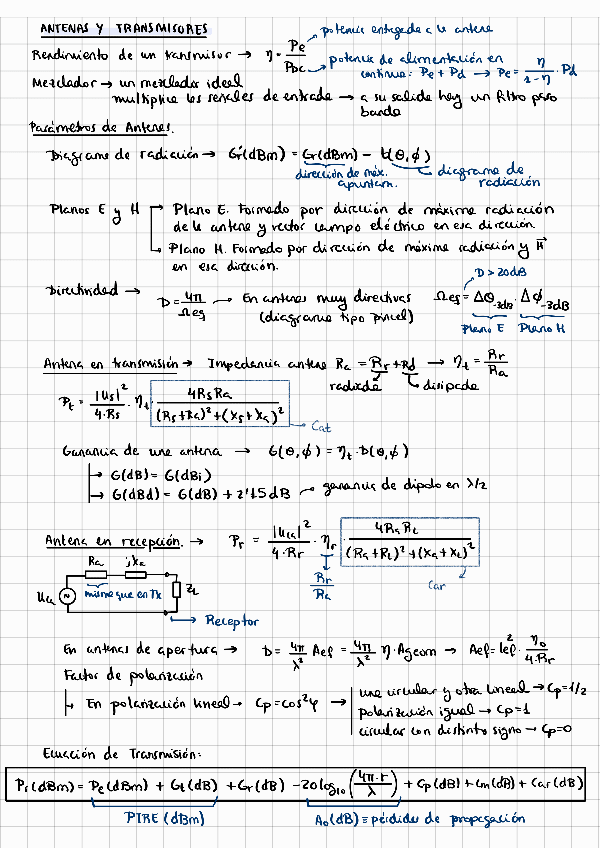 ANTENAS Y TRANSMISORES
Rendimiento de un transmisor → η = Pe/PDC
potencia entregada a la antena
potencia de alimentación en
continua: Pe + Pd → Pe = η/(1-η) · Pd
Mezclador → un mezclador ideal
multiplica las señales de entrada → a su salida hay un filtro paso
banda
Parámetros de Antenas.
Diagrama de radiación → G(dBm) = Gr(dBm) - t(θ,ϕ)
dirección de máx. apuntam.
diagrama de radiación
Planos E y H
Plano E. Formado por dirección de máxima radiación
de la antena y vector campo eléctrico en esa dirección.
Plano H. Formado por dirección de máxima radiación y H⃗
en esa dirección.
D > 20dB
Directividad → D = 4π/Ωeq → En antenas muy directivas
(diagrama tipo pincel)
Ωeq = Δθ-3dB · Δϕ-3dB
Plano E Plano H
Antena en transmisión → Impedancia antena Ra = Rr + Rd → ηt = Rr/Ra
radiada disipada
Pt = |Us|²/(4·Rs) · ηt · 4RsRa/((Rs+Ra)²+(Xs+Xa)²)
Cat
Ganancia de una antena → G(θ,ϕ) = ηt · D(θ,ϕ)
→ G(dB) = G(dBi)
→ G(dBd) = G(dB) + 2'15dB
ganancia de dipolo en λ/2
Antena en recepción. → Pr = |Ua|²/(4·Rr) · ηr · 4RaRL/((Ra+RL)²+(Xa+XL)²)
Rr/Ra
Car
Ra jXa
Ua
mismo que en Tx
ZL
Receptor
En antenas de apertura → D = 4π/λ² Aef = 4π/λ² η·Ageom → Aef = lef² · η0/(4·Rr)
Factor de polarización
En polarización lineal → Cp = cos²φ →
una circular y otra lineal → Cp = 1/2
polarización igual → Cp = 1
circular con distinto signo → Cp = 0
Ecuación de Transmisión:
Pr(dBm) = Pe(dBm) + Gt(dB) + Gr(dB) - 20log10(4π·r/λ) + Cp(dB) + Cat(dB) + Car(dB)
PIRE (dBm)
A0(dB) ≡ pérdidas de propagación